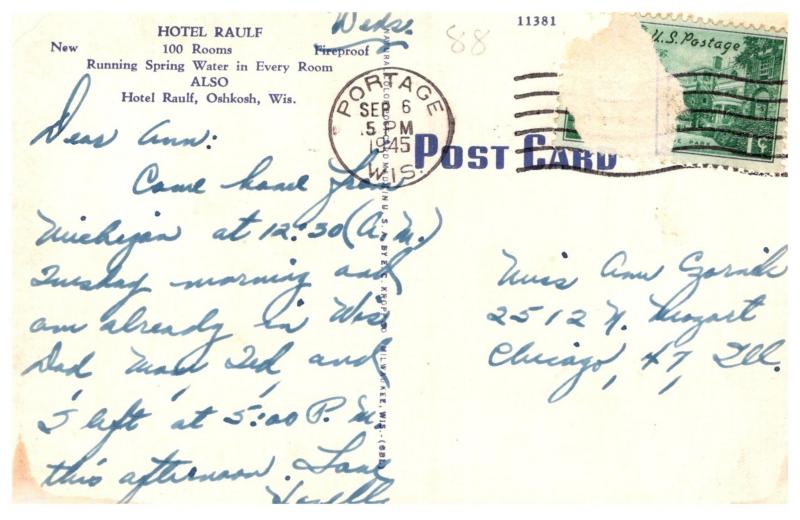 HOTEL RAULF
New 100 Rooms Fireproof
Running Spring Water in Every Room
ALSO
Hotel Raulf, Oshkosh, Wis.
Weds.
Dear Ann:
Came home from
Michigan at 12:30 (A.M.)
Tuesday morning and
am already in Wis.
Dad, Mom, Ted, and
I left at 5:00 P.M.
this afternoon. Love
PORTAGE
SEP 6
5 PM
1945
WIS.
11381
88
U.S. Postage
1¢
POST CARD
Miss Ann
2512 N. Mozart
Chicago, 47, Ill.